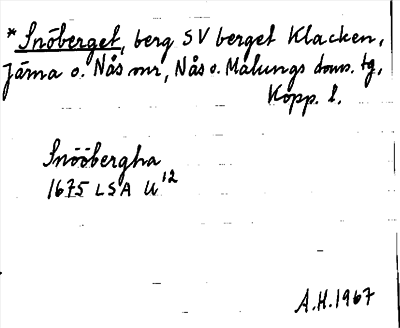 * Snöberget, berg SV berget Klacken,
Järna o. Nås snr, Nås o. Malungs doms. tg,
Kopp. l.
Snööbergha
1675 LSA U 12
A.H. 1967